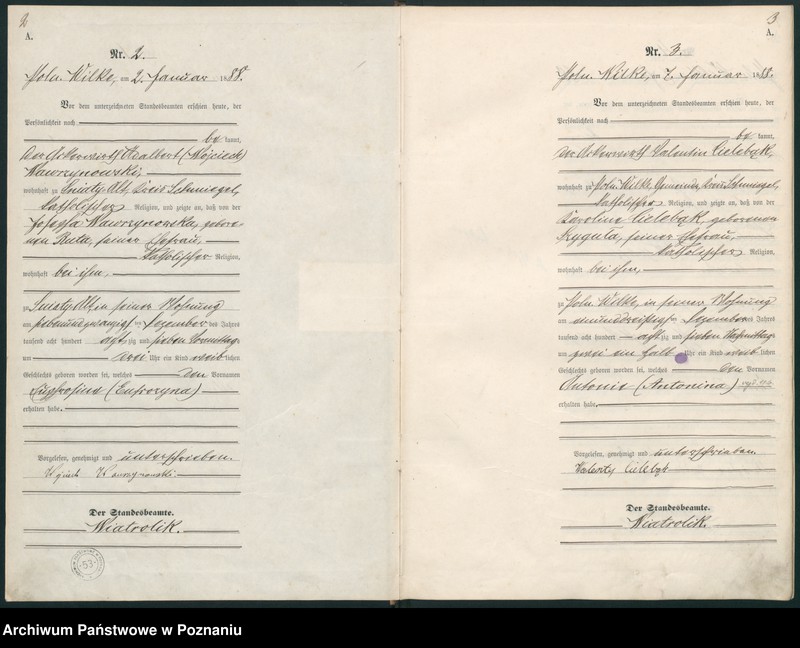 2
A.
Nr. 2.
Poln. Wilke, am 2. Januar 1888.
Vor dem unterzeichneten Standesbeamten erschien heute, der
Persönlichkeit nach
be kannt,
der Ackerwirth Adalbert (Wojciech)
Wawrzynowski,
wohnhaft zu Sniaty Alt, Kreis Schmiegel,
katholischer Religion, und zeigte an, daß von der
Josefa Wawrzynowska, gebore-
nen Ratta, seiner Ehefrau,
katholischer Religion,
wohnhaft bei ihm,
zu Sniaty Alt in seiner Wohnung
am siebenundzwanzigsten Dezember des Jahres
tausend acht hundert achtzig und sieben Vormittags
um drei Uhr ein Kind weiblichen
Geschlechts geboren worden sei, welches den Vornamen
(Eufrozyna)
erhalten habe.
Vorgelesen, genehmigt und unterschrieben.
Wawrzynowski
Der Standesbeamte.
Wiatrolik.
53
3
A.
Nr. 3.
Poln. Wilke, am 7. Januar 1888.
Vor dem unterzeichneten Standesbeamten erschien heute, der
Persönlichkeit nach
be kannt,
der Ackerwirth Valentin Cielebąk,
wohnhaft zu Poln. Wilke Gemeinde, Kreis Schmiegel,
katholischer Religion, und zeigte an, daß von der
Karoline Cielebąk geborenen
Ryguła, seiner Ehefrau,
katholischer Religion,
wohnhaft bei ihm,
zu Poln. Wilke, in seiner Wohnung
am einunddreißigsten Dezember des Jahres
tausend acht hundert achtzig und sieben Nachmittags
um zwei ein halb Uhr ein Kind weiblichen
Geschlechts geboren worden sei, welches den Vornamen
Antonie (Antonina)
erhalten habe.
Vorgelesen, genehmigt und unterschrieben.
Walenty Cielebąk
Der Standesbeamte.
Wiatrolik.
Archiwum Państwowe w Poznaniu